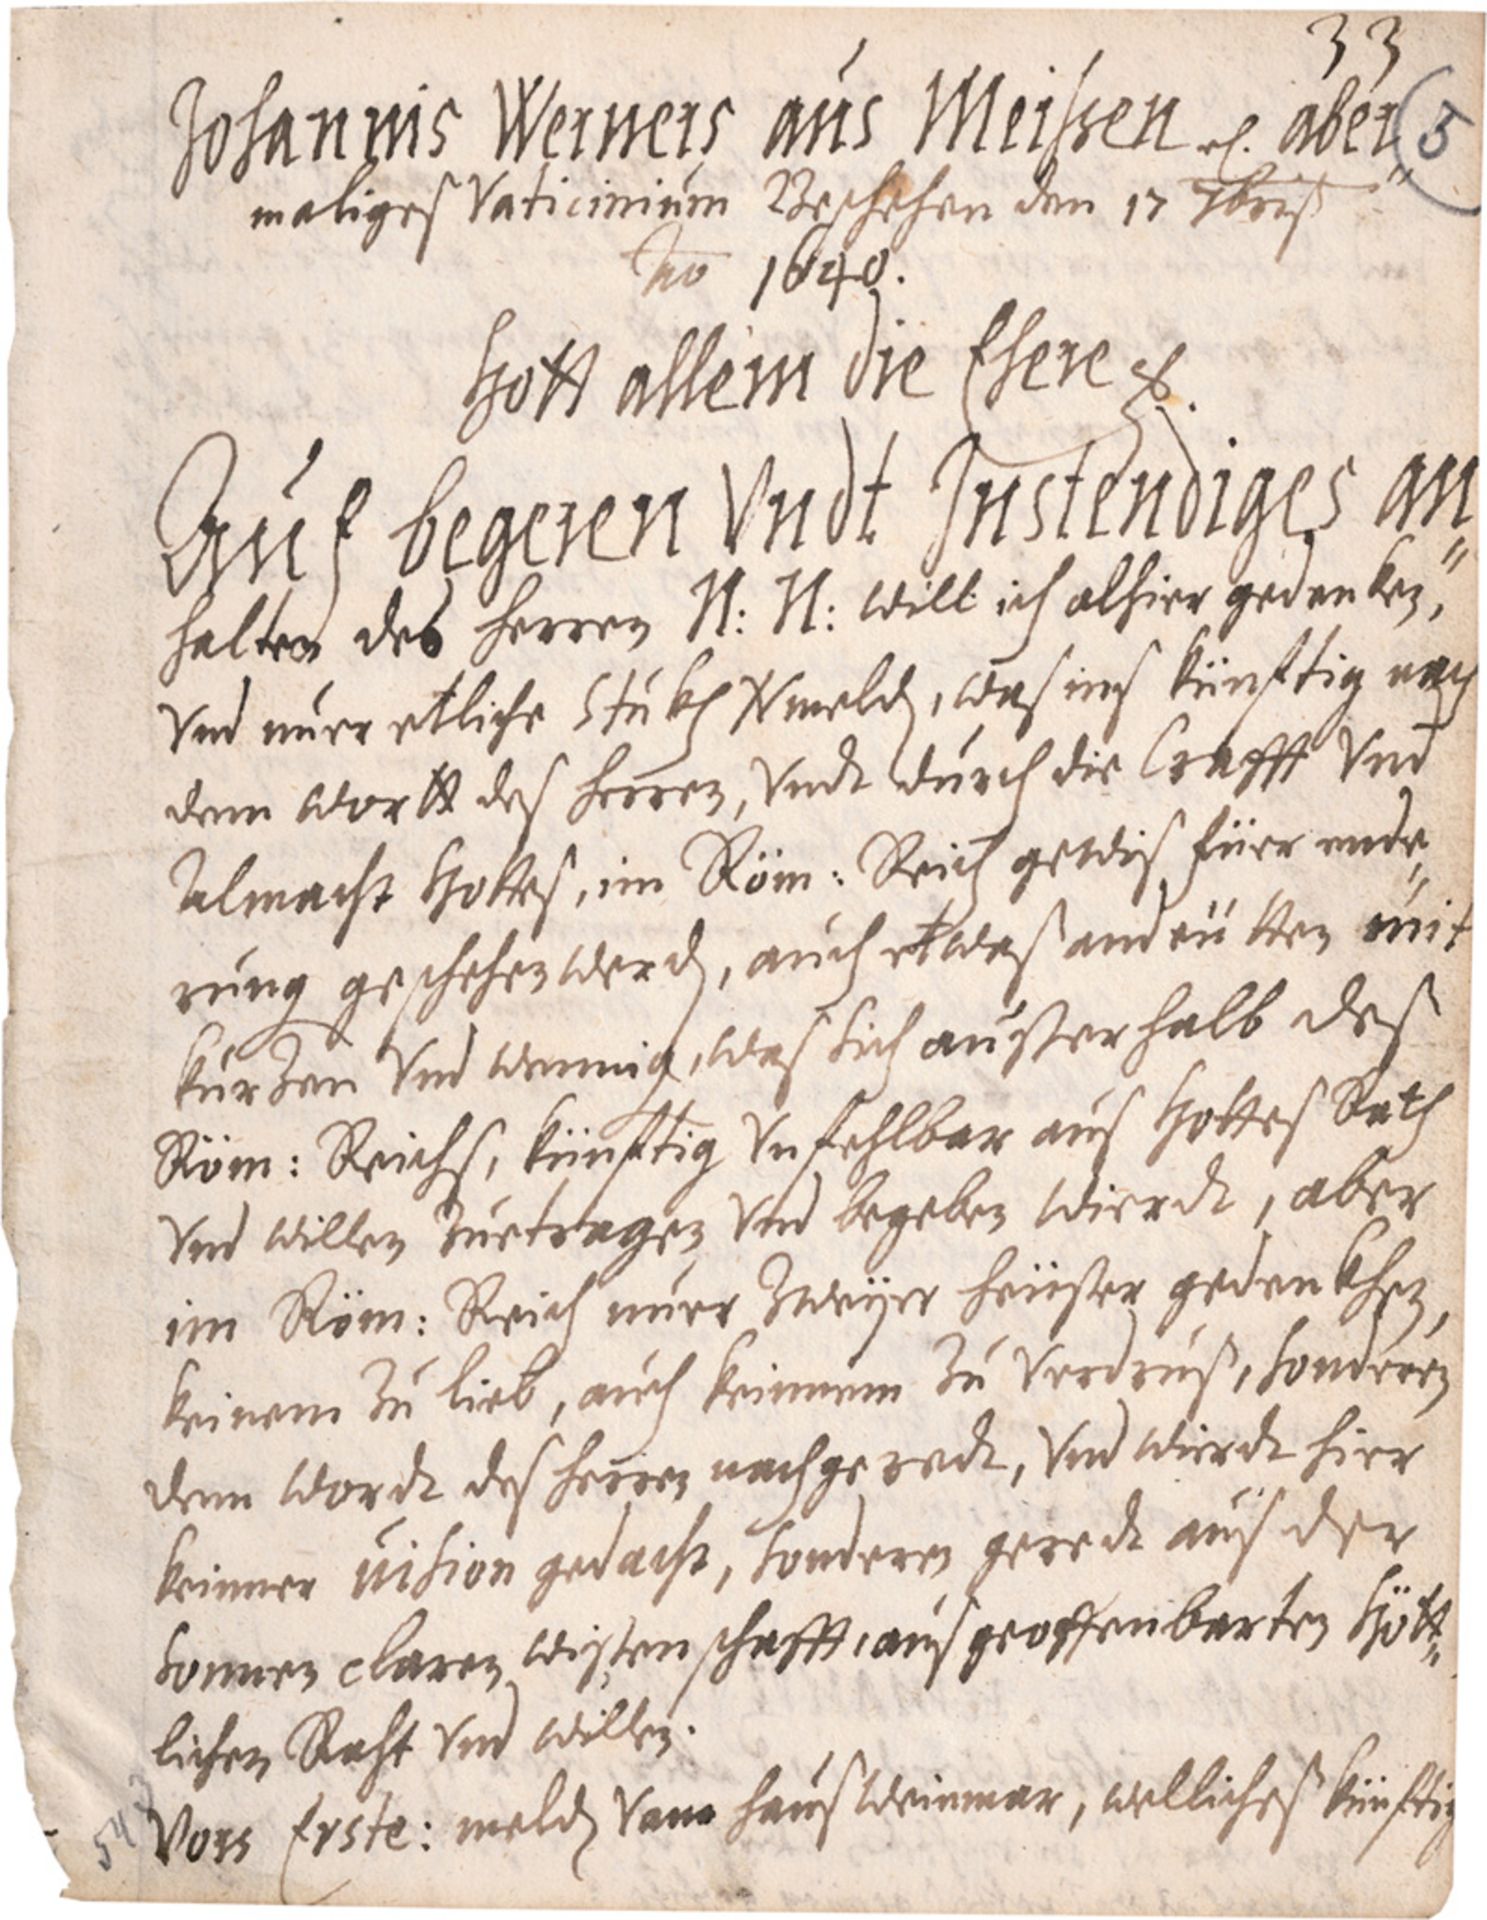 33
Johannis Werners aus Meissen etc. aber„ 5
maliges Vaticinium Beschehen den 17 7bris
Ao 1640.
Gott allein die Ehere etc.
Auf begeren Vndt Instendiges an„
halten des herren N: N: will ich alhier gedenken,
Vnd nurr etliche Stukh Vmelden, was ins künftig nach
dem Wortt des herren, Vndt durch die Crafft Vnd
Almacht Gottes, im Röm: Reich gewis füer ende„
rung geschehen werden, auch etwas andeütten mit
kurzen Vnd wennig, was sich ausserhalb des
Röm: Reichs, künftig Vnfehlbar aus Gottes Rath
Vnd willen Zuetragen Vnd begeben wierdt, aber
im Röm: Reich nurr Zweyer heüser gedenkhen,
keinem Zu lieb, auch keinnem Zu Verdrus, sonderen
dem Wordt des herren nachgeredt, Vnd wierdt hier
keinner Vision gedacht, sonderen geredt aus der
sonnen claren wissenschafft, aus geoffenbarten Gött„
lichen Raht Vnd willen.
Vors Erste: melden Vom haus Weinmar, welliches künftig
543